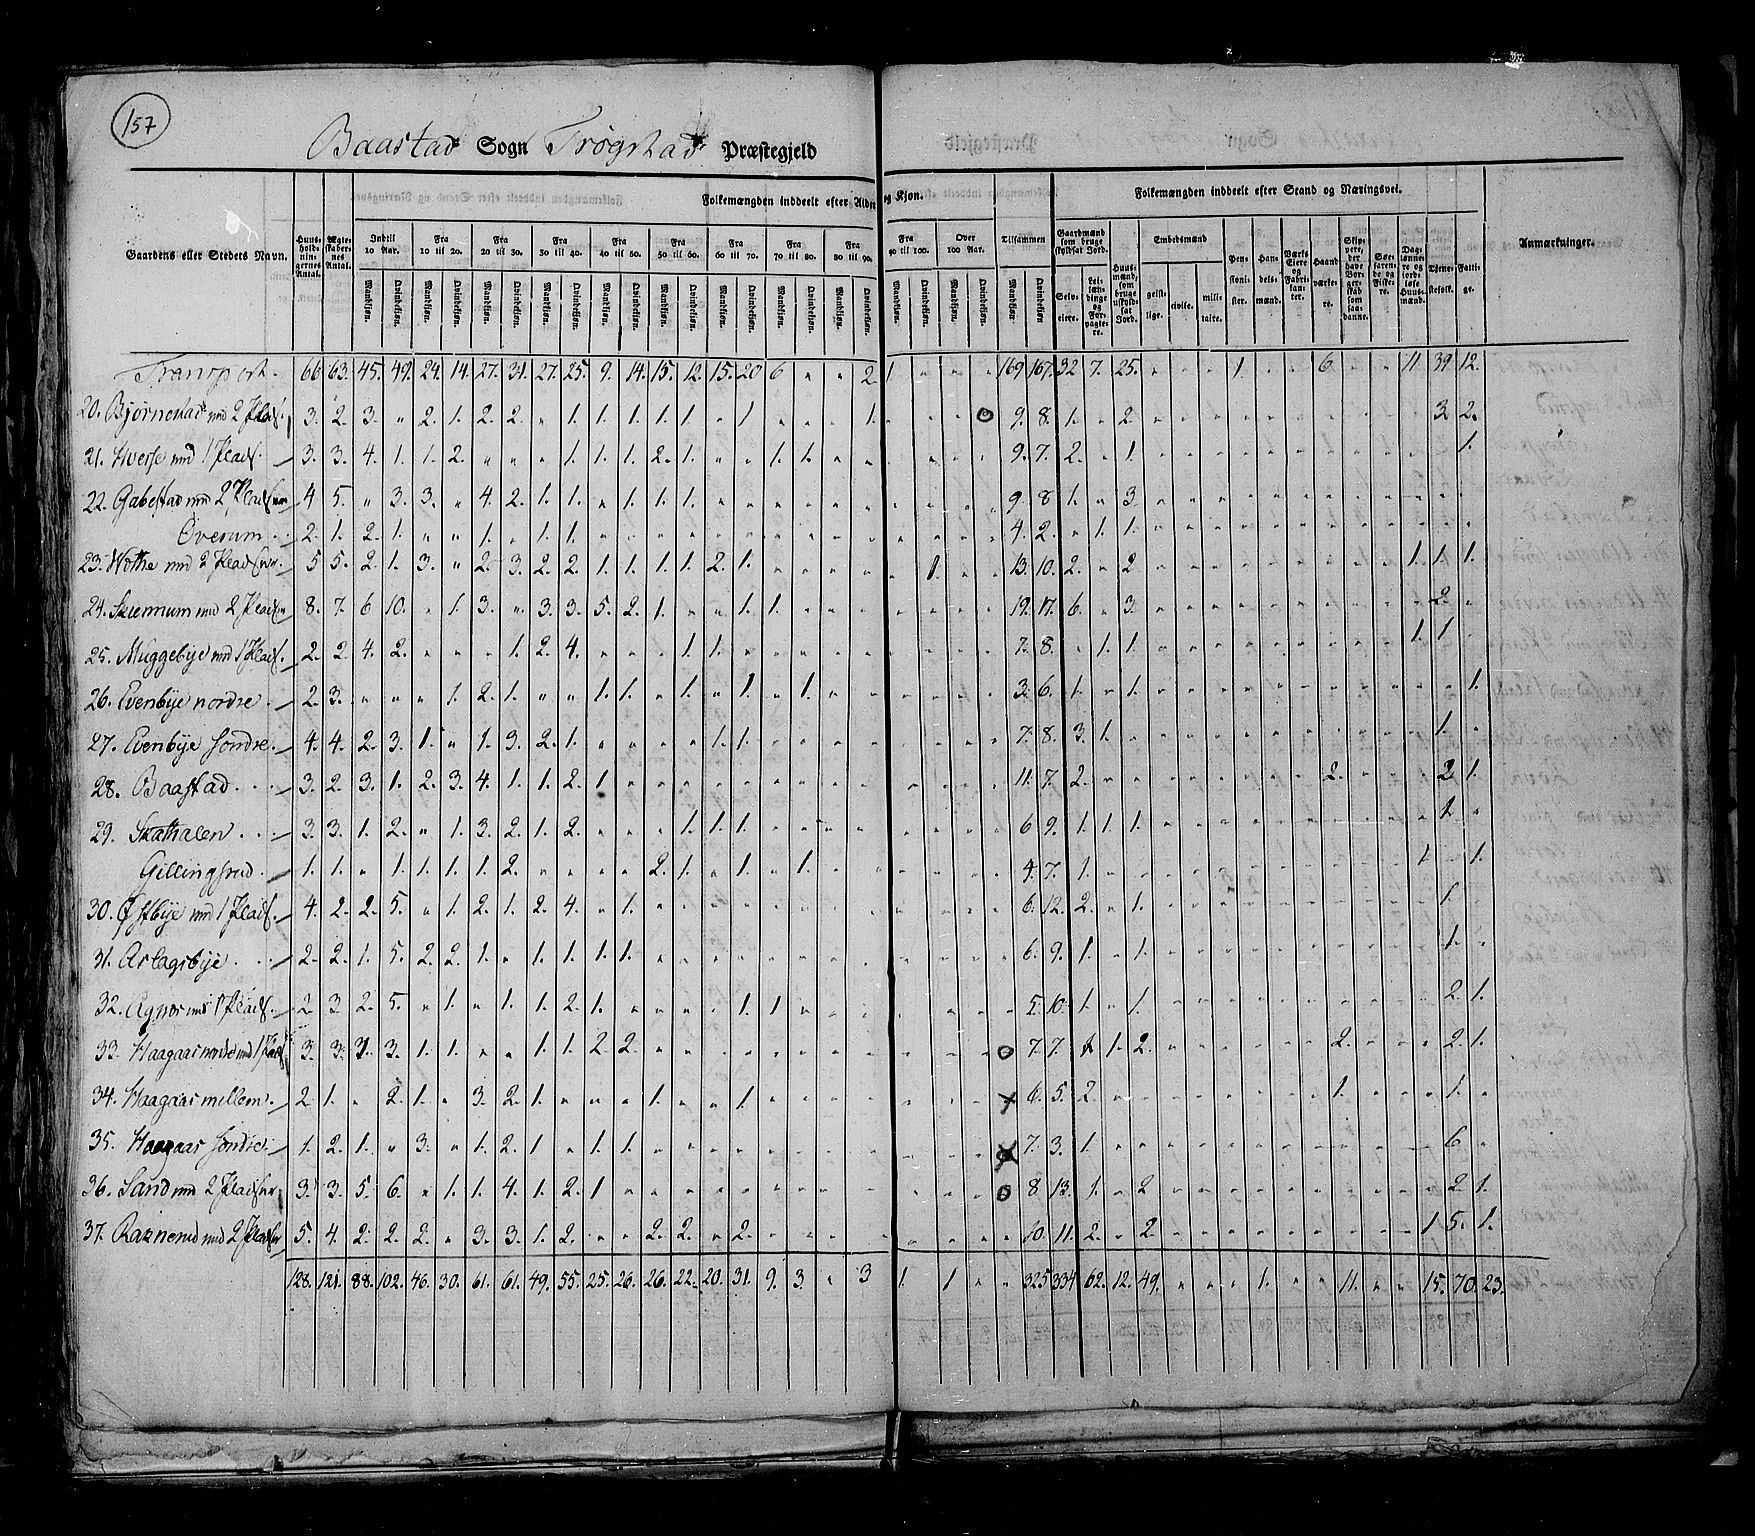 157
Baastad Sogn Trøgstad Præstegjeld
Folkemængden inddeelt efter Alder og Kjøn.
Folkemængden inddeelt efter Stand og Næringsvei.
Gaardens eller Stedets Navn. Huusholdningernes Antal. Ægteskabernes Antal. Indtil 10 Aar. Fra 10 til 20. Fra 20 til 30. Fra 30 til 40. Fra 40 til 50. Fra 50 til 60. Fra 60 til 70. Fra 70 til 80. Fra 80 til 90. Fra 90 til 100. Over 100 Aar. Tilsammen Gaardmænd som bruge skyldsat Jord. Huusmænd, som bruge uskyldsat Jord. Embedsmænd Pensionister. Handelsmænd. Værks Eiere og Fabrikanter. Haandværkere. Skippere, der have Borgerskab som saadanne. Søefarende og Fiskere. Daglønnere og jordløse Huusmænd. Tjenestefolk. Fattige. Anmærkninger.
Mandkiøn. Qvindekiøn. Selveiere. Leilændinge og Forpagtere. geistlige. civile. militaire.
Transport. 66 63. 45. 49. 24. 14. 27. 31. 27. 25. 9. 14. 15. 12. 15. 20 6 " " 2. 1. " " " 169 167. 32 7. 25. " " " 1. " " 6. " " 11 39 12.
20. Bjørnestad med 2 Plads. 3. 2. 3. " 2. 1. 2. 2. " 1. 1. 1. 1. 1. " 1. " " " 1. " " " 9. 8. 1. " 2. 3. 2.
21. Hverse med 1 Plads. 3. 3. 4. 1. 1. 2. " " " 1. 1. 1. 2. 1. " " 1. 1. " " " " " " 9. 7. 2. " 1. 1.
22. Gabestad med 2 Pladser 4 5. " 3. 3. " 4. 2. 1. 1. " 1. 1. 1. " " " " " " " " " " 9. 8 1. " 3.
Overum 2. 1. 2. 1. " " 1. " 1. 1. " " " " " " " " " " " " " " 4. 2. " 1. 1.
23. Wothe med 2 Pladser. 5 5. 2. 1. 3. " 2. 3. 2. 2. 1. 1. 1. 1. 2. 1. " " " " " 1. " " 13. 10. 2. " 2 1. 1. 1.
24. Skiennum med 2 Pladser 8. 7. 6 10. " 1. 3. " 3. 3. 5. 2. 1. " " 1. 1. " " " " " " " 19. 17. 6. " 3. 2.
25. Muggebÿe med 1 Plads. 2. 2. 4. 2. " " " 1. 2. 4. " " " 1. 1. " " " " " " " " " 7. 8. " 1. 1. 1. 1.
26. Evenbÿe nordre. 2. 3. " " " 1. 2. 1. " " 1. 1. " 1. " 1. " 1. " " " " " " 3. 6. 1. " 1. 1.
27. Evenbÿe søndre. 4. 4. 2. 3. 1. " 1. 3. 2. 1. " " " " 1. 1. " " " " " " " " 7. 8. 3. 1. 1.
28. Baastad. 3. 2. 3. 1. 2. 3. 4. 1. 1. 2. 1 " " " " " " " " " " " " " 11. 7. 2. 2. 2. 1.
29. Skathalen. 3. 3. 1. 2. " 1. 3. 2. 1. 2. " " " 1. 1. 1. " " " " " " " " 6 9. 1. 1. 1. 1.
Gillingsrud. 1. 1. " 1. 1. 1. 1. 2. " " " " 2. 1. " 1. " 1. " " " " " " 4. 7. 1. 1 1.
30. Østbÿe med 1 Plads. 4. 2. 2. 5. " 1. 2. 1. 2. 4. " 1. " " " " " " " " " " " " 6. 12. 2. " 1. 1.
31. Aslagsbÿe. 2. 2. 1. 5. 2. 2. 1. " 1. 1. 1. 1. " " " " " " " " " " " " 6. 9. 1. " 1. 1.
32. Agnæs med 1 Plads. 2. 3. 2. 5. " 1. " 1. 1. 2. 1. " " " " 1. 1. " " " " " " " 5. 10. 1. " 1. 2. 1.
33. Haagaas nordre med 1 Plads 3. 3. 3. 3. 1. 1. " " 1. 1. 2. 2. " " " " " " " " " " " " 7. 7. 1. 1. 2. 2. 2. 1.
34. Haagaas mellem. 2. 1. " 2. 1. " 3. 2. 1. " " " 1. " " 1. " " " " " " " " 6. 5. 2. 1. 1.
35. Haagaas søndre. 1. 2. 1. " 3. " 1. 2. 1 " 1. 1. " " " " " " " " " " " " 7. 3. 1. 6.
36. Sand med 2 Pladser 3. 3. 5. 6. " 1. 1. 4. 1. 2. 1 " " " " " " " " " " " " " 8. 13. 1. " 2 2. 1.
37. Raknerud med 2 Pladser 5. 4. 2. 2. 2. " 3. 3. 1. 2. " " 2. 2. " 2. " " " " " " " " 10. 11. 2. " 2. 1 5. 1.
128. 121. 88. 102. 46. 30. 61. 61. 49. 55. 25. 26. 26. 22. 20. 31. 9. 3. " 3 1. 1 " " 325 334 62. 12. 49. " " " 1. " " 11. " " 15. 70. 23.